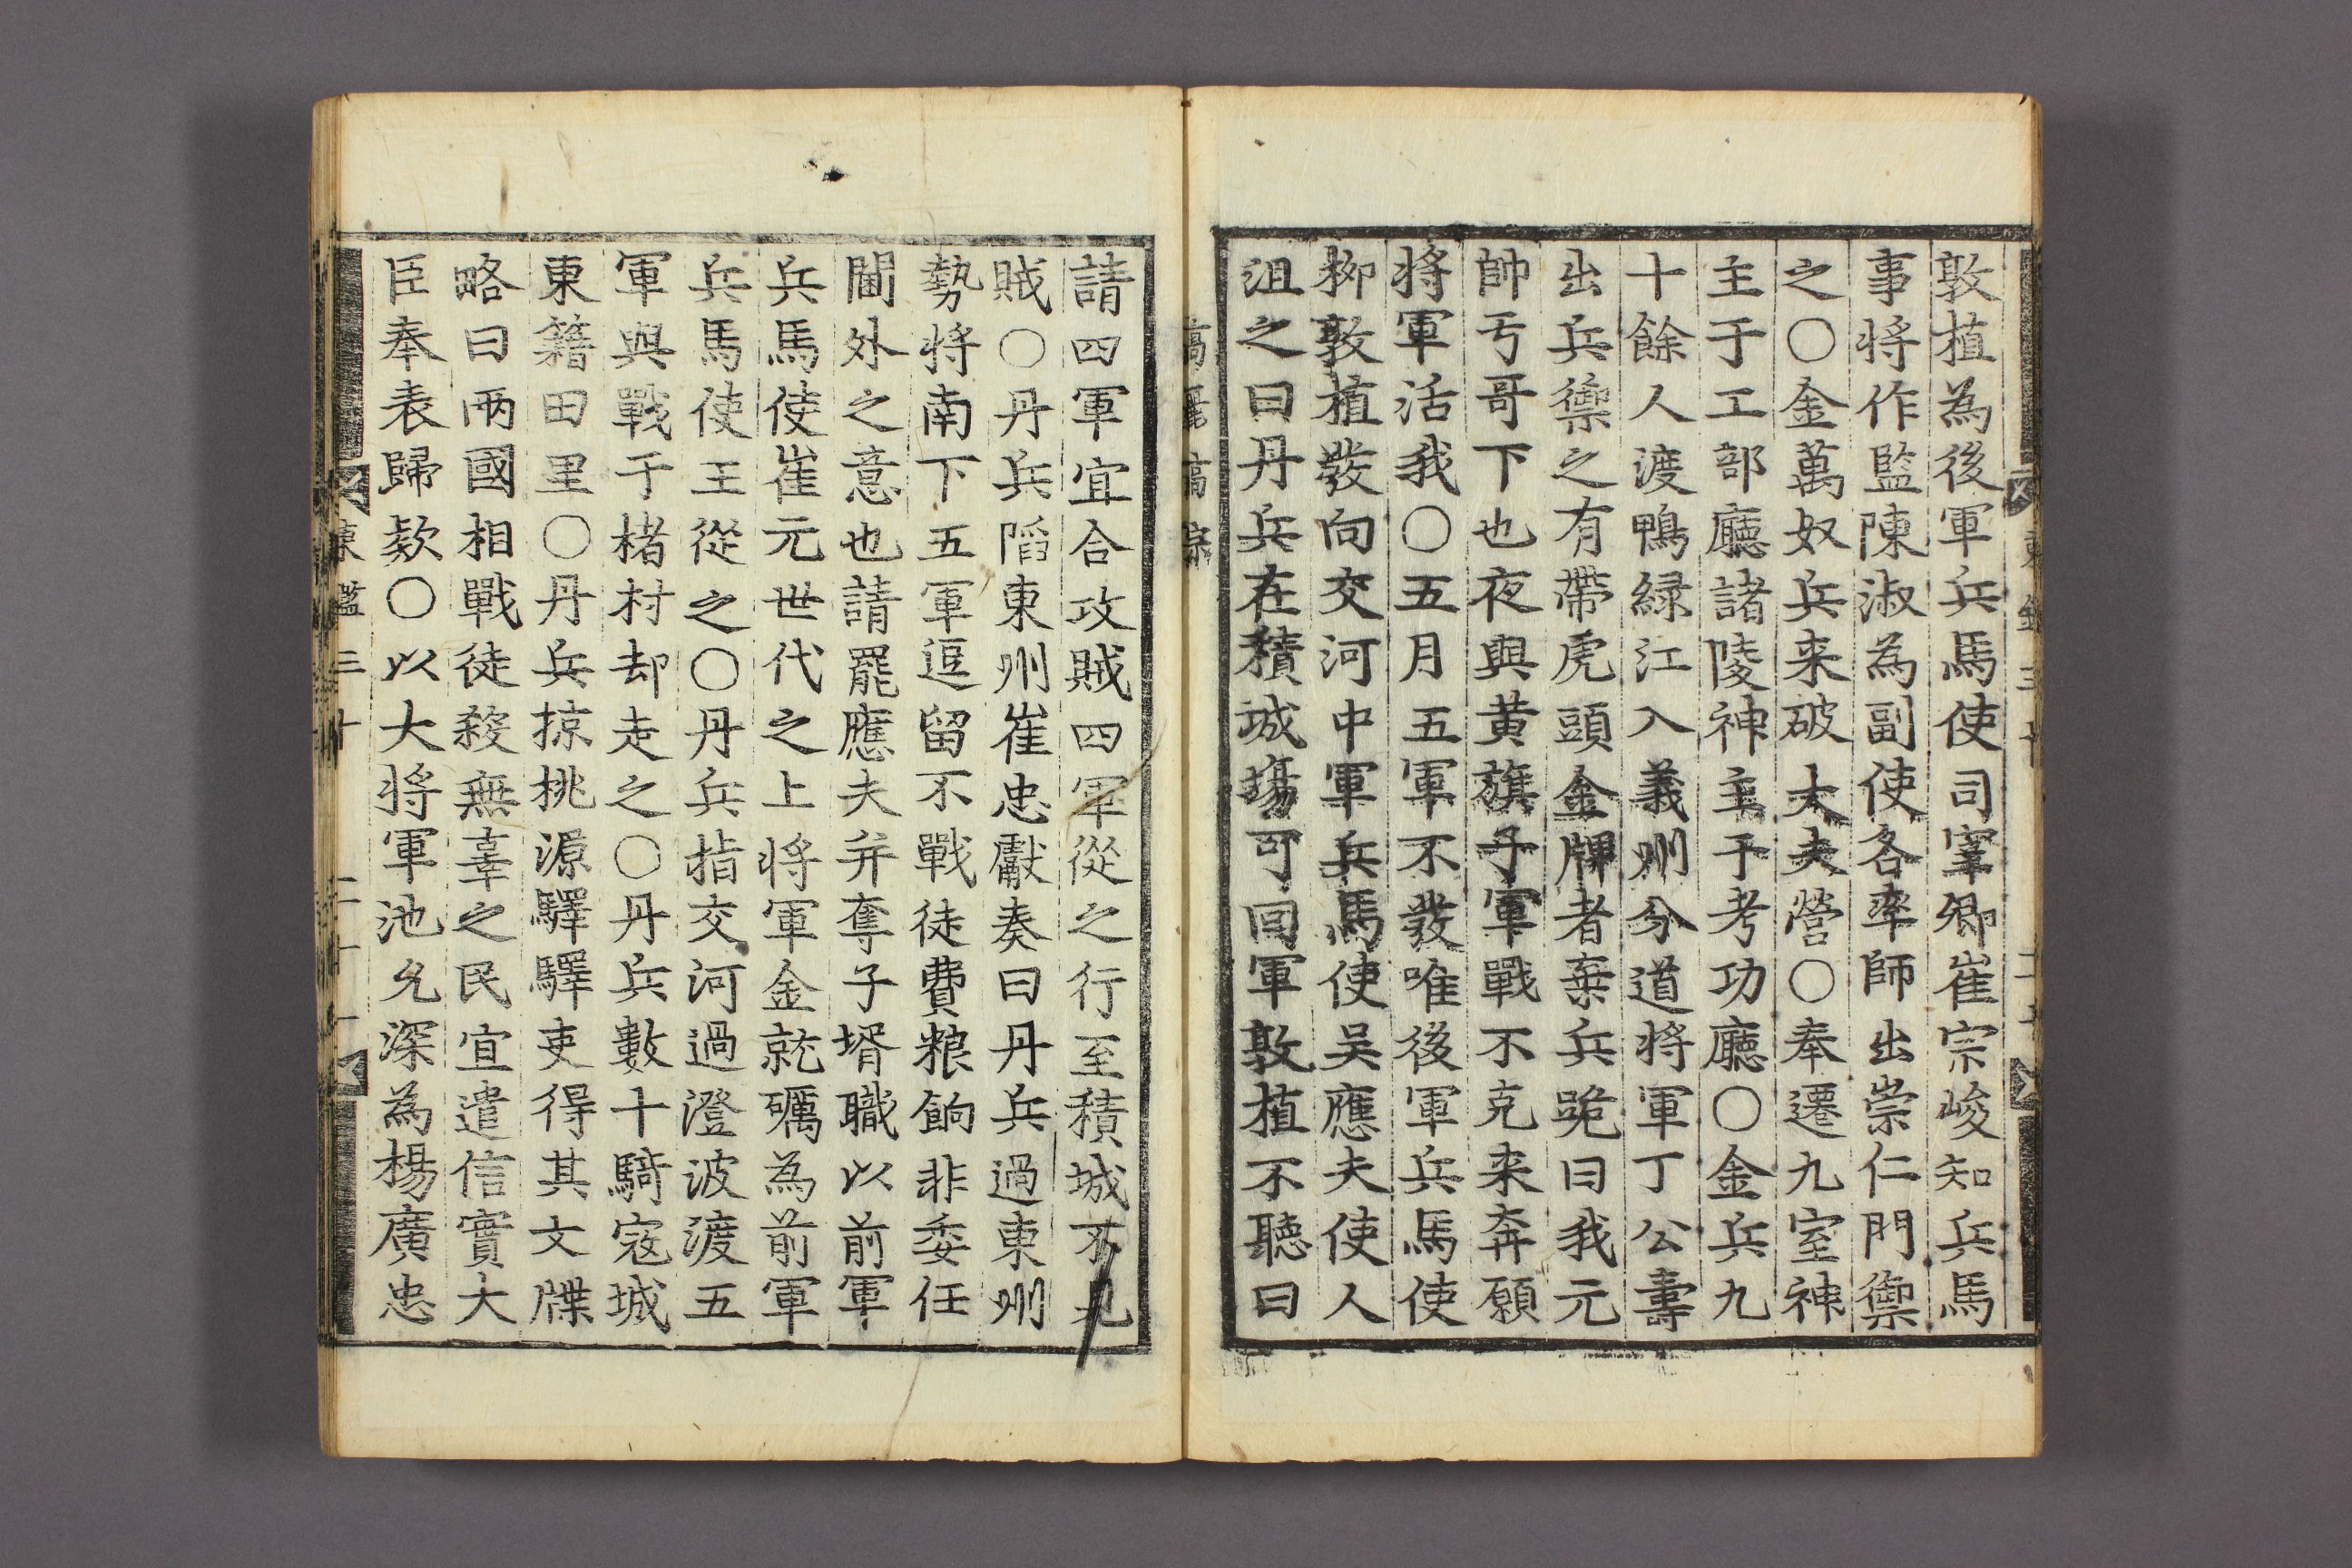 敦植為後軍兵馬使司宰卿崔宗峻知兵馬
事將作監陳淑為副使各率師出崇仁門禦
之〇金萬奴兵来破大夫營〇奉遷九室神
主于工部廳諸陵神主于考功廳〇金兵九
十餘人渡鴨綠江入義州分道將軍丁公壽
出兵禦之有帶虎頭金牌者棄兵跪曰我元
帥亏哥下也夜與黄旗子軍戰不克来奔願
將軍活我〇五月五軍不發唯後軍兵馬使
柳敦植發向交河中軍兵馬使吳應夫使人
沮之曰丹兵在積城場可回軍敦植不聽曰
請四軍宜合攻賊四軍從之行至積城不見
賊〇丹兵陷東州崔忠獻奏曰丹兵過東州
勢將南下五軍逗留不戰徒費粮餉非委任
閫外之意也請罷應夫并奪子壻職以前軍
兵馬使崔元世代之上將軍金就礪為前軍
兵馬使王從之〇丹兵指交河過澄波渡五
軍與戰于楮村却走之〇丹兵數十騎寇城
東籍田里〇丹兵掠桃源驛驛吏得其文牒
略曰兩國相戰徒殺無辜之民宜遣信實大
臣奉表歸欵〇以大將軍池允深為楊廣忠
東鑑三十
二十一